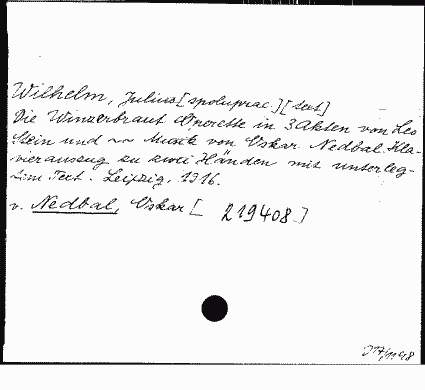 Wilhelm, Julius [spoluprac.] [text]
Die Winzerbraut Operette in 3 Akten von Leo
Stein und ~ Musik von Oskar Nedbal. Kla-
vierauszug zu zwei Händen mit unterleg-
tem Text. Leipzig, 1916.
v. Nedbal, Oskar [219408]